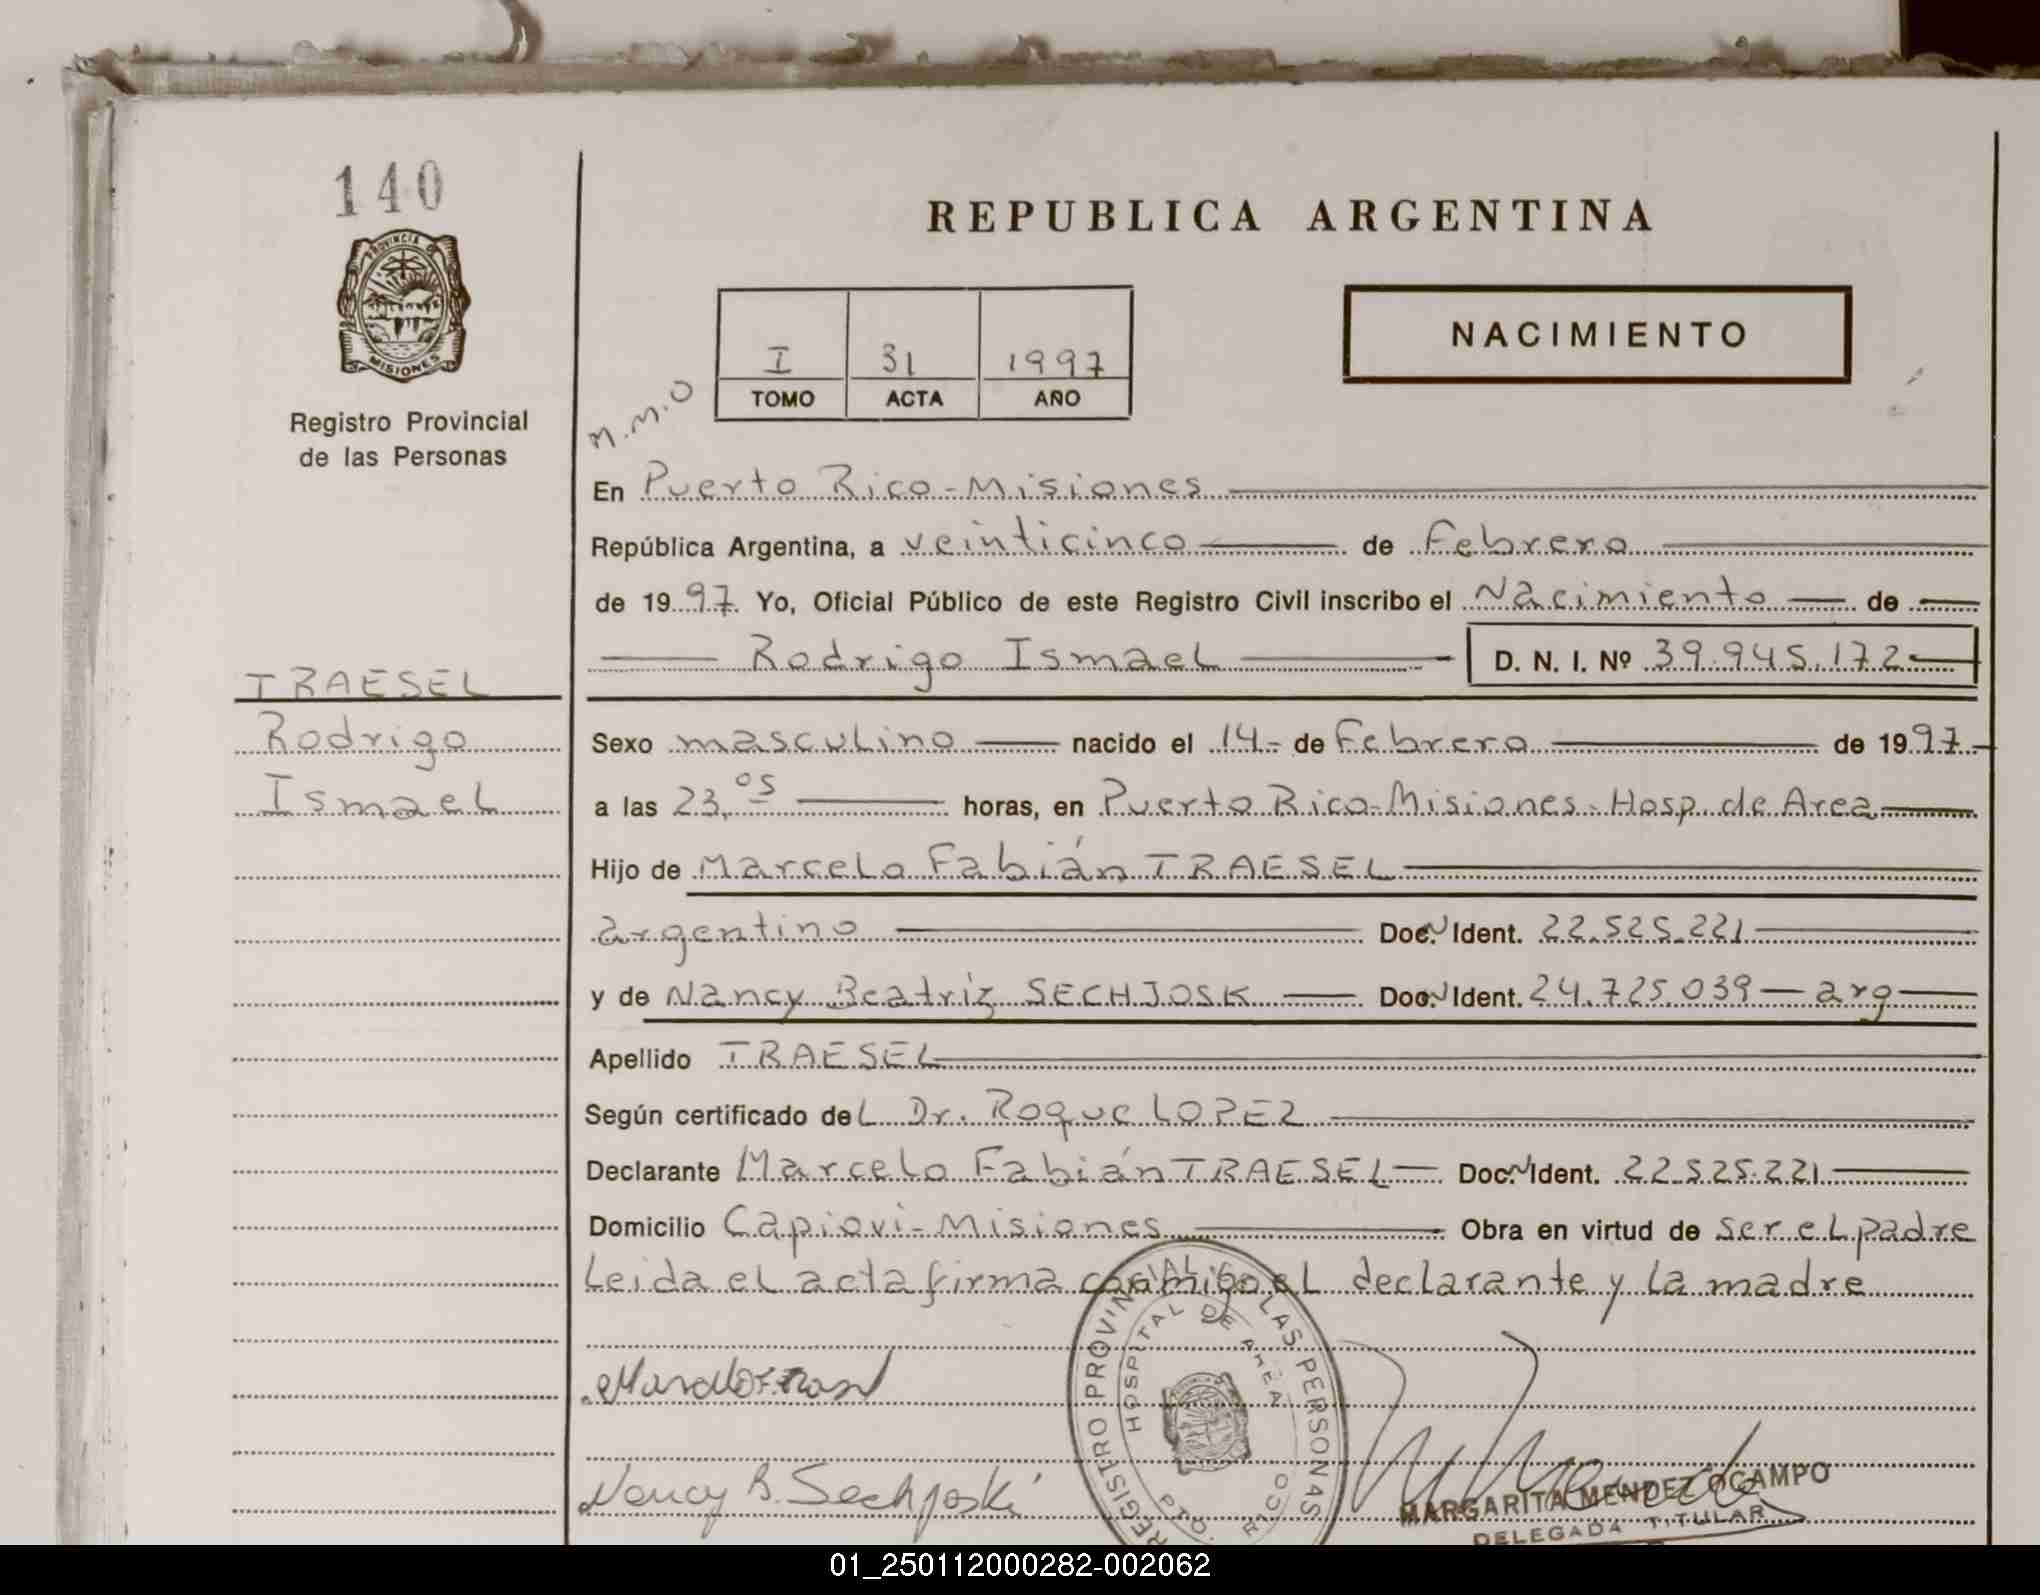 140
PROVINCIA DE
MISIONES
Registro Provincial
de las Personas
REPUBLICA ARGENTINA
I 31 1997
TOMO ACTA AÑO
NACIMIENTO
M.M.O
En Puerto Rico-Misiones
República Argentina, a veinticinco de Febrero
de 1997. Yo, Oficial Público de este Registro Civil inscribo el Nacimiento de
Rodrigo Ismael D. N. I. Nº 39.945.172
TRAESEL
Rodrigo
Ismael
Sexo masculino nacido el 14- de Febrero de 1997-
a las 23,05 horas, en Puerto Rico-Misiones-Hosp. de Area
Hijo de Marcelo Fabián TRAESEL
argentino Doc. N Ident. 22.525.221
y de Nancy Beatriz SECHJOSK Doc. N Ident. 24.725.039 - arg
Apellido TRAESEL
Según certificado del Dr. Roque LOPEZ
Declarante Marcelo Fabián TRAESEL Doc. N Ident. 22.525.221
Domicilio Capiovi-Misiones Obra en virtud de ser el padre
Leida el acta firma conmigo el declarante y la madre
REGISTRO PROVINCIAL DE LAS PERSONAS
HOSPITAL DE AREA
PTO. RICO
Nancy B. Sechjoski
MARGARITA MENDEZ OCAMPO
DELEGADA TITULAR
01_250112000282-002062